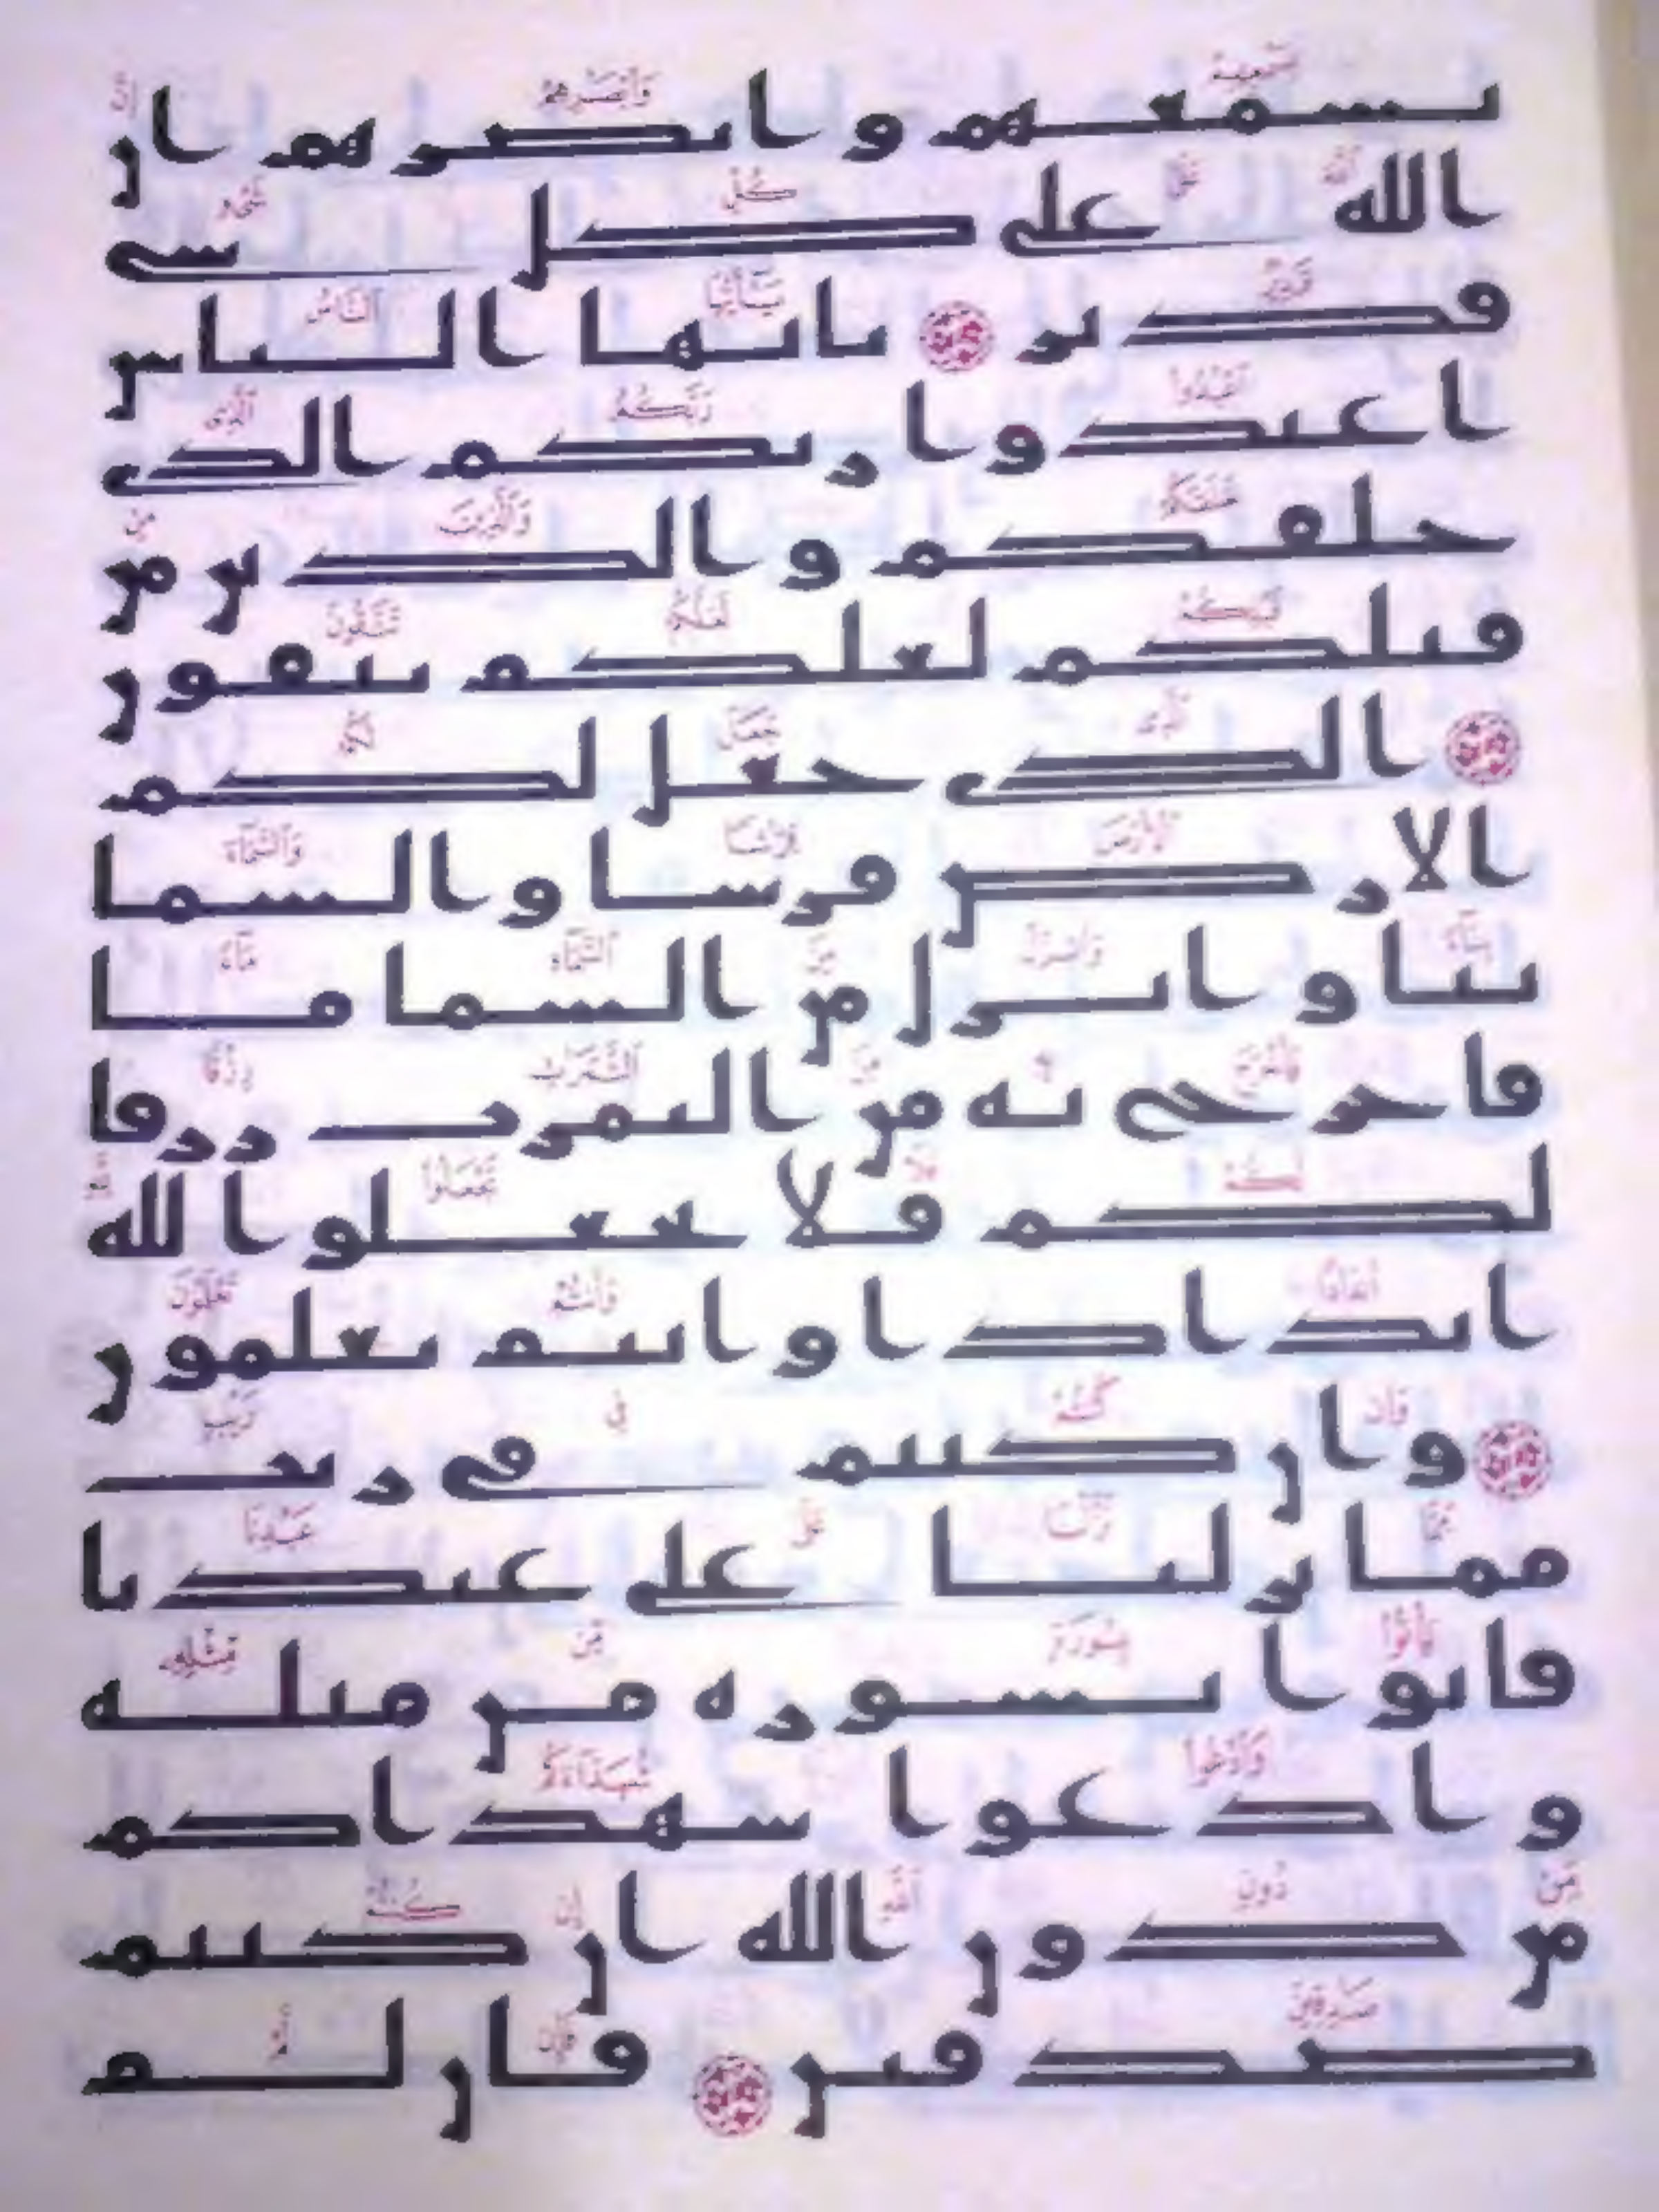 بسمعهم وابصرهم ان
الله على كل شى
قدير يايها الناس
اعبدوا ربكم الذى
خلقكم والذين من
قبلكم لعلكم تتقون
الذى جعل لكم
الارض فرشا والسما
بنا وانزل من السما ما
فاخرج به من الثمرت رزقا
لكم فلا تجعلوا لله
اندادا وانتم تعلمون
وان كنتم فى ريب
مما نزلنا على عبدنا
فاتوا بسوره من مثله
وادعوا شهداكم
من دون الله ان كنتم
صدقين فان لم